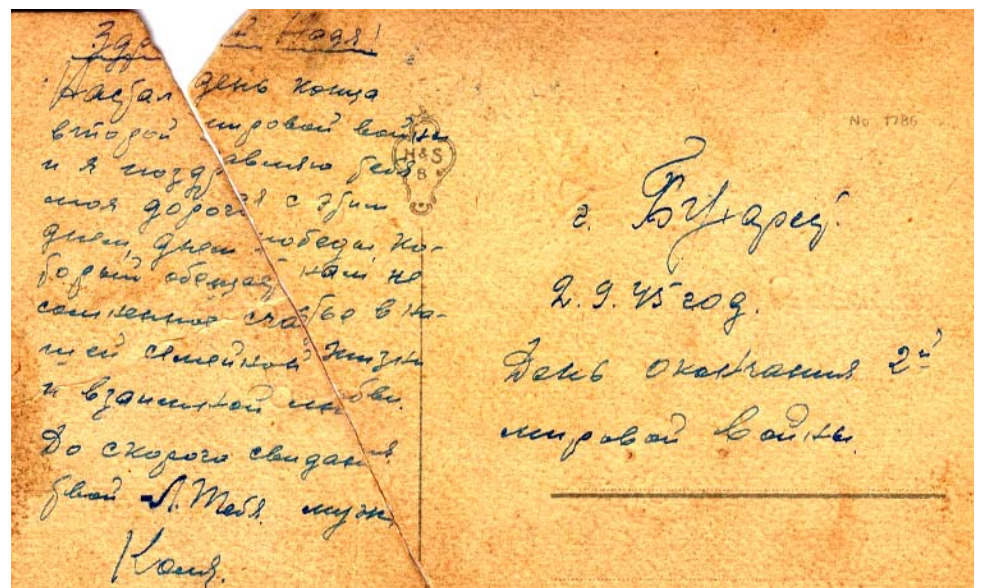 Здр Надя!
Настал день конца
второй мировой войны
и я поздравляю тебя
моя дорогая с этим
днем, днем победы ко-
торый обещает нам не
сомненное счастье в на-
шей семейной жизни
и взаимной любви.
До скорого свидания.
твой Л. Тебя. муж,
Коля.
H & S
B
No 1786
г. Бухарест.
2.9.45 год.
День окончания 2й
мировой войны.